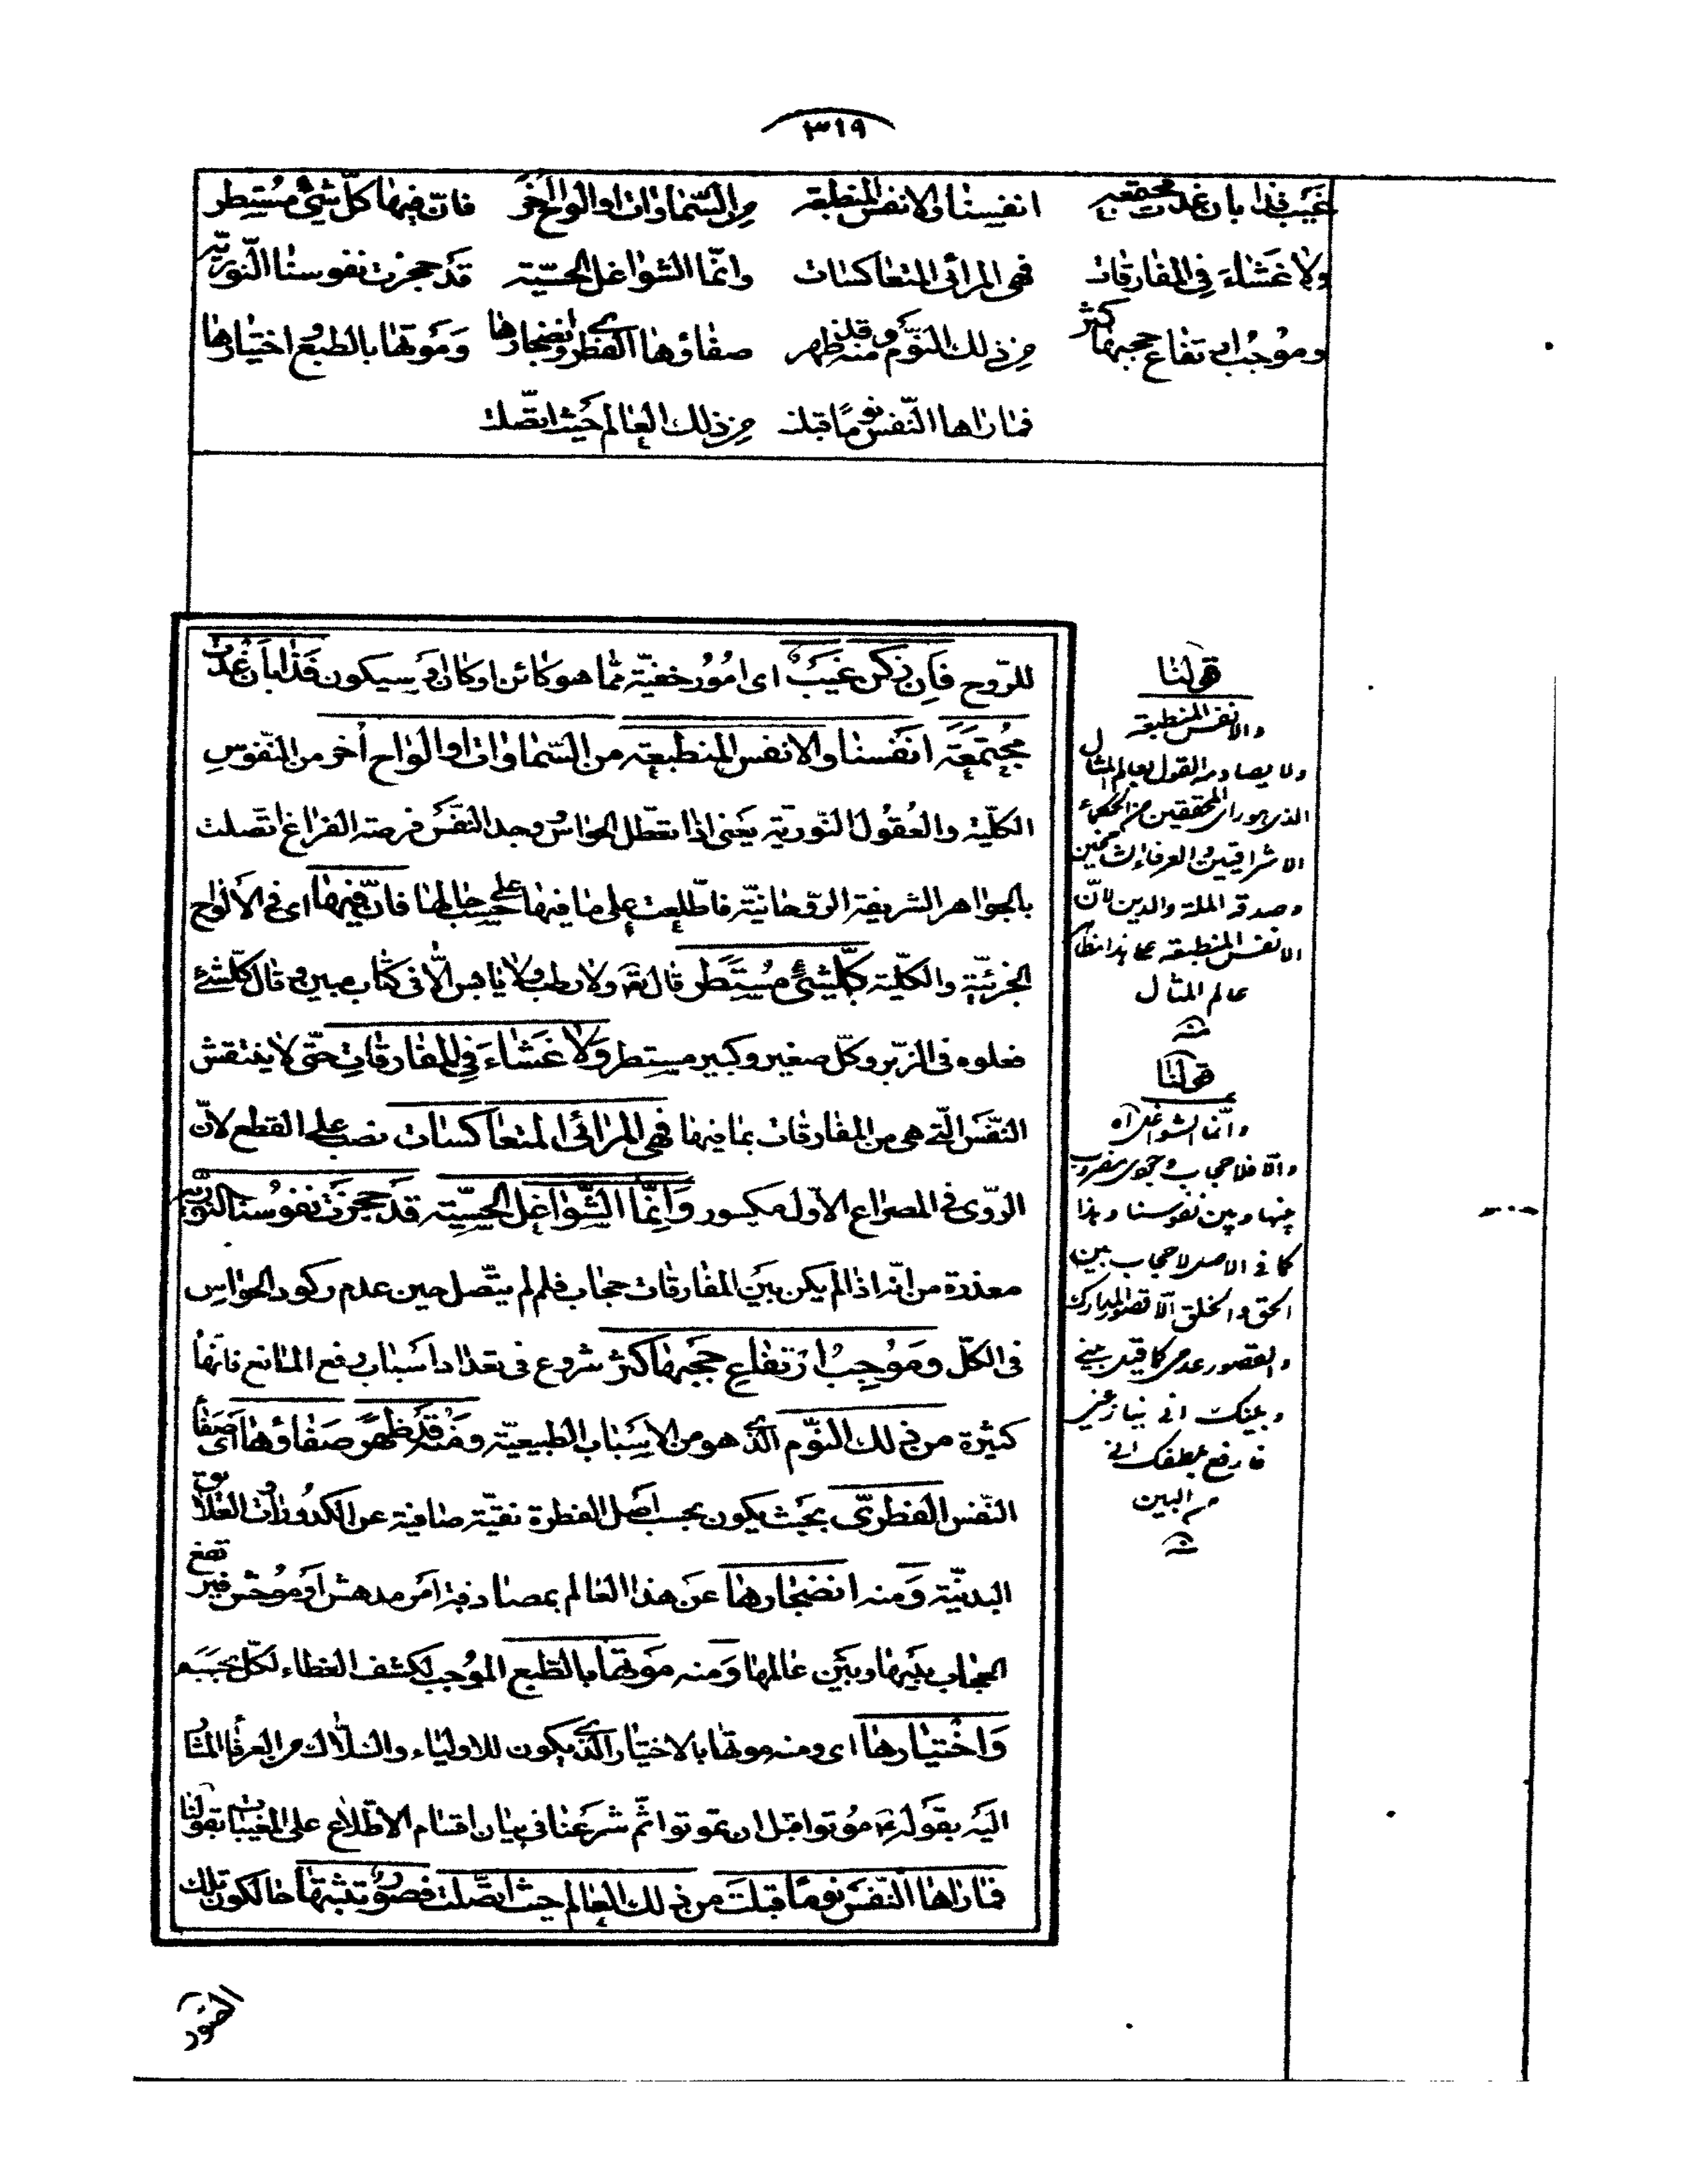 ٣١٩
غَيبٌ فذا بان غدت مجتمعة انفسنا والانفس المنطبعة من السّماوات او الواح اُخر فانّ فيها كلّ شيءٍ مُستطر
ولا غَشاءَ فِي المفارقات فهى المرائى المتعاكسات وانّما الشواغل الحسّية قَد حجزت نفوسنا النّوريّة
ومُوجبُ ارتفاع حجبها كثر من ذلك النّوم ومنه قد ظهر صفاؤها الفطرى وانضجارها ومَوتها بالطبع اختيارها
فما راها النّفس نومًا قبلت من ذلك العالم حَيث اتّصلت
للرّوح فَاِن زكن غَيبٌ اى امُورٌ خفيّة ممّا هو كائن او كان او سيكون فَذا بان غدت
مجُتمعَةً انفَسنا والانفس المنطبعة من السّماوات او الواح اُخر من النّفوس
الكلّية والعُقُول النّوريّة يعَنى اذا تعطّل الحواسّ وجد النّفس فرصة الفراغ اتّصلت
بالجواهر الشريفة الرّوحانيّة فاطّلعت على ما فيها على حسب حالها فانّ فيها اى فى الألواح
الجزئيّة والكلّية كلّ شيءٍ مُستَطر قال تع ولا رطب ولا يابس الّا فى كتاب مبين وقال كلّ شئ
فعلوه فى الزّبر وكلّ صغير وكبير مستطر وَلا غَشاءَ فِي المفارقاتِ حتّى لا ينتقش
النّفس الّتى هى من المفارقات بما فيها فهى المرائى المتعاكسات نصب على القطع لانّ
الرّوى فى المصراع الاوّل مكسور وَانّما الشّواغل الحسّيّة قَد حجزت نفوسنا النّوريّة
معذرة من انّه اذا لم يكن بين المفارقات حجاب فلم لم يتّصل حين عدم ركود الحواس
فى الكلّ ومَوُجِبُ ارتفاع حجبها كثر شروع فى تعداد اسباب رفع المانع فانّها
كثيرة من ذلك النّوم الّذى هو من الاسباب الطبيعيّة ومنه قد ظهر صفاؤها اى صفاء
النّفس الفطرىّ بحيث يكون بحسب اصل الفطرة نقيّة صافية عن الكدورات والعلايق
البدنيّة وَمنه انضجارها عَن هذا العالم بمصادفة امر مدهش او موحش فيرتفع
الحجاب بينها وبين عالمها وَمنه مَوتها بالطّبع الموُجب لكشف الغطاء لكلّ بحسبه
وَاختيارها اى ومنه موتها بالاختيار الّذى يكون للاولياء والسّلّاك من العرفا المشار
اليه بقوله ع مُوتوا قبل ان تموتوا ثمّ شرعنا فى بيان اقسام الاطّلاع على المغيبات بقولنا
فما راها النّفس نومًا قبلت من ذلك العالم حيث اتّصلت فصُوَر تثبتها حالكون تلك
الصّور
قولنا
والانفس المنطبعة
ولا يصادمه القول بعالم المثال
الذى هو راى المحققين من الحكماء
الاشراقيين والعرفاء الشامخين
وصدقه الملة والدين لانّ
الانفس المنطبعة
عالم المثال
منه
قولنا
وانّما الشواغل اه
والّا فلا حجاب وجودى مضروب
بينها وبين نفوسنا وهذا
كما فى الاصل لا حجاب بين
الحق والخلق الّا قصور المدارك
والقصور عدمى كما قيل بينى
وبينك انى ينازعنى
فارفع بلطفك انى
من البين
منه